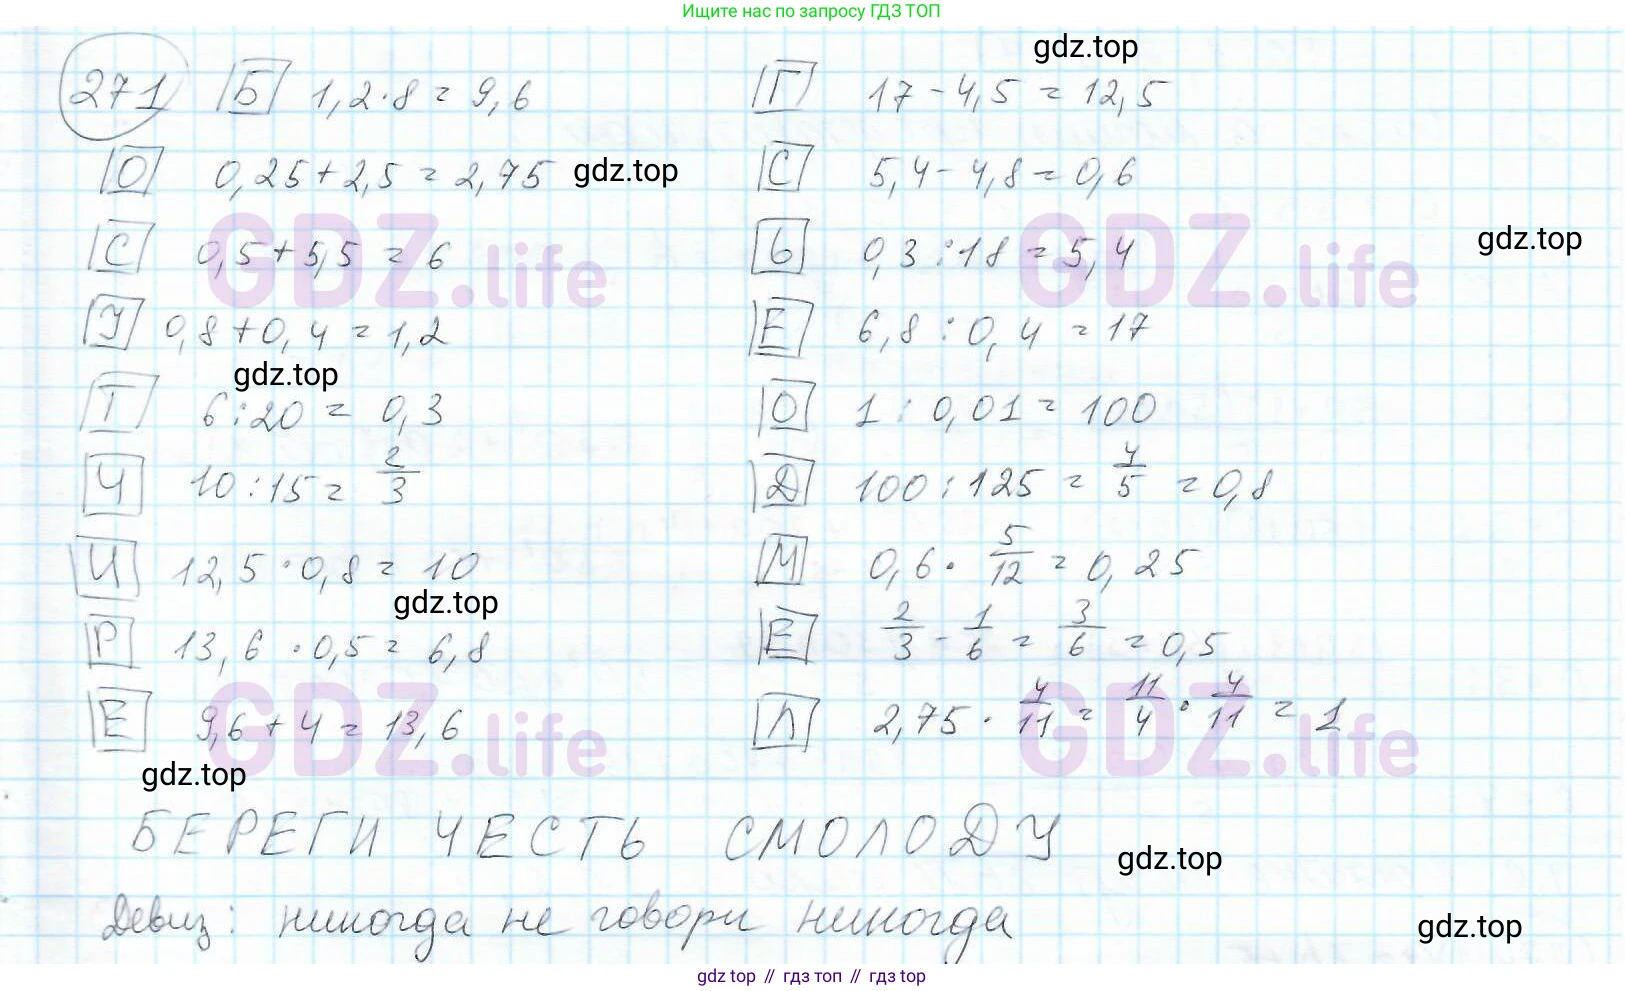 Ищите нас по запросу ГДЗ ТОП
gdz.top
271 Б 1,2·8 = 9,6
Г 17 - 4,5 = 12,5
О 0,25+2,5 = 2,75 gdz.top
С 5,4 - 4,8 = 0,6
С 0,5+5,5 = 6
Ь 0,3 : 18 = 5,4
gdz.top
GDZ.life GDZ.life
У 0,8+0,4 = 1,2
Е 6,8 : 0,4 = 17
gdz.top
Т 6:20 = 0,3
О 1 : 0,01 = 100
Ч 10:15 = 2/3
Д 100:125 = 4/5 = 0,8
И 12,5·0,8 = 10
М 0,6 · 5/12 = 0,25
gdz.top
Р 13,6 · 0,5 = 6,8
Е 2/3 - 1/6 = 3/6 = 0,5
Е 9,6+4 = 13,6
Л 2,75 · 4/11 = 11/4 · 4/11 = 1
GDZ.life GDZ.life
gdz.top
БЕРЕГИ ЧЕСТЬ СМОЛОДУ
gdz.top
Девиз: никогда не говори никогда
gdz.top
gdz top // гдз топ // гдз top